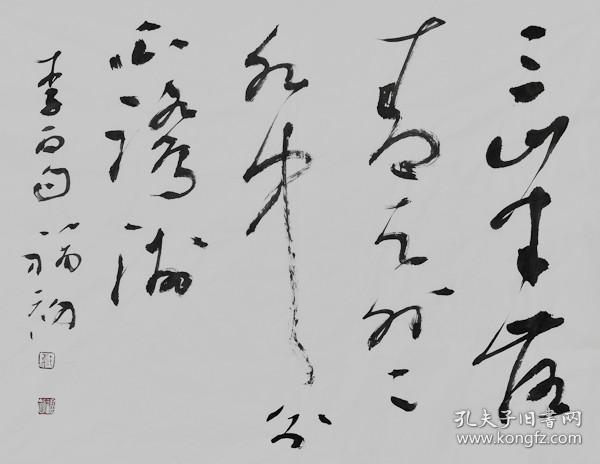 三山半落
青天外二
水中分
白鹭洲
李白句
孔夫子旧书网
www.kongfz.com